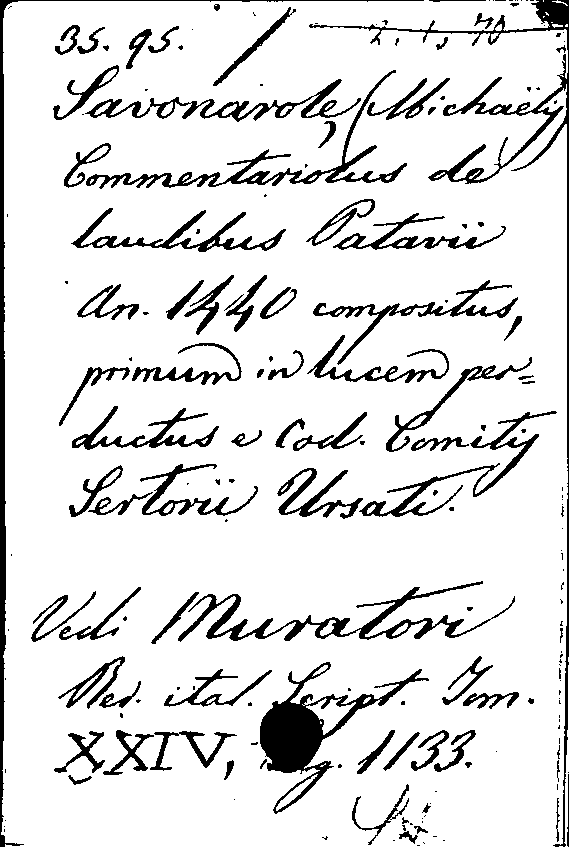 35. 95. / 2. 1, 70
Savonarole, (Michaëlij)
Commentariolus de
laudibus Patavii
An. 1440 compositus,
primum in lucem per=
ductus e Cod. Comitij
Sertorii Ursati.
Vedi Muratori
Rer. ital. Script. Tom.
XXIV, 1133.